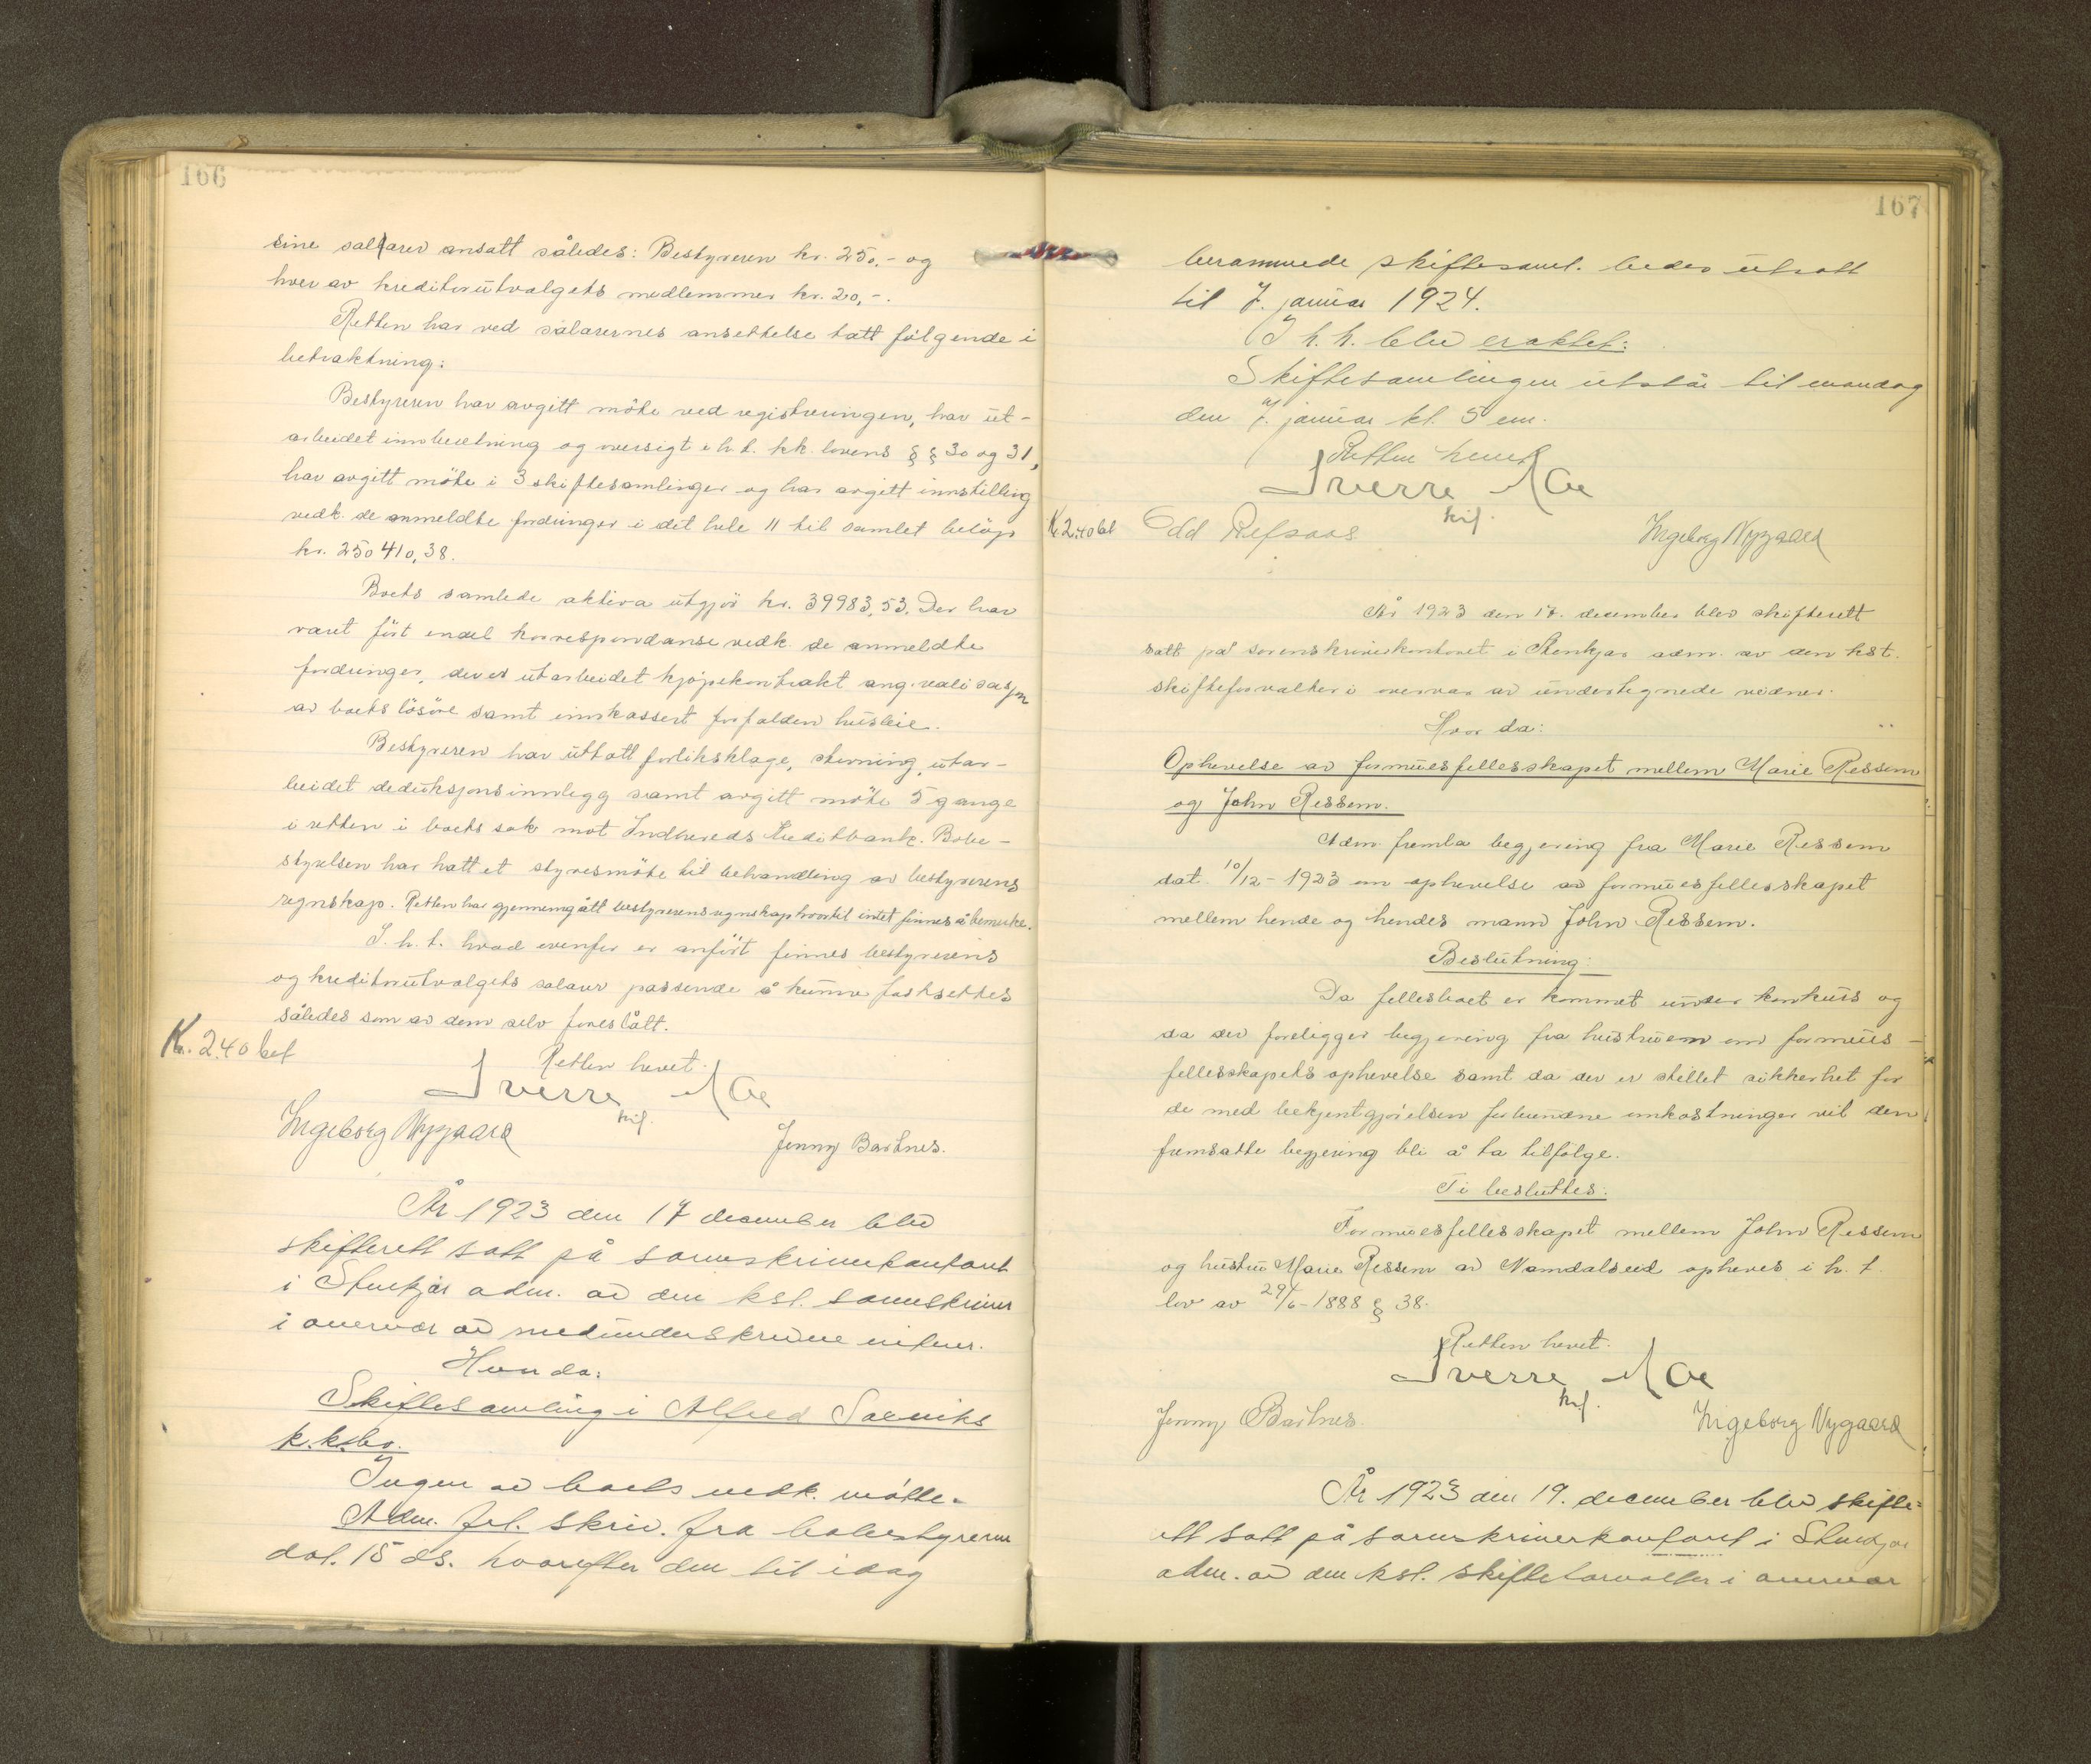 166
sine salarer ansatt således: Bestyreren kr. 250,- og
hver av kreditorutvalgets medlemmer kr. 20,-.
Retten har ved salarernes ansettelse tatt følgende i
betraktning:
Bestyreren har avgitt möte ved registreringen, har ut-
arbeidet innberetning og oversigt i h. t. kk. lovens § § 30 og 31,
har avgitt möte i 3 skiftesamlinger og har avgitt innstilling
vedk. de anmeldte fordringer i det hele 11 til samlet beløp
kr. 250410,38.
Boets samlede aktiva utgjör kr. 39983,53. Der har
været fört endel korrespondanse vedk. de anmeldte
fordringer, der er utarbeidet kjøpekontrakt ang. realisasjon
av boets lösöre samt innkassert forfalden husleie.
Bestyreren har uttatt forliksklage, stevning, utar-
beidet deduksjonsinnlegg samt avgitt möte 5 gange
i retten i boets sak mot Indherreds Kreditbank. Bobe-
styrelsen har hatt et styresmöte til behandling av bestyrerens
regnskap. Retten har gjennemgått bestyrerens regnskap hvortil intet finnes å bemerke.
I. h. t. hvad ovenfor er anfört finnes bestyrerens
og kreditorutvalgets salarer passende å kunne fastsettes
således som av dem selv foreslått.
Kr. 2.40 bet
Retten hevet.
Sverre Moe
kst.
Ingeborg Nygaard
Jenny Bartnes.
År 1923 den 17 december blev
skifterett satt på sorenskriverkontoret
i Stenkjær adm. av den kst. sorenskriver
i overvær av medunderskrevne vidner.
Hvor da:
Skiftesamling i Alfred Sæviks
k.k.bo.
Ingen av boets vedk. mötte.
Adm. frl. skriv. fra bobestyreren
dat. 15 ds. hvorefter den til idag
167
berammede skiftesaml. bedes utsatt
til 7. januar 1924.
I h. h. blev eraktet:
Skiftesamlingen utstår til mandag
den 7. januar kl. 5 em.
Retten hevet
Sverre Moe
kst.
Kr. 2.40 bet
Odd Refsaas
Ingeborg Nygaard
År 1923 den 17. december blev skifterett
satt på sorenskriverkontoret i Stenkjær adm. av den kst.
skifteforvalter i overvær av undertegnede vidner.
Hvor da:
Ophevelse av formuesfellesskapet mellem Marie Ressem
og John Ressem.
Adm. fremla begjering fra Marie Ressem
dat. 10/12-1923 om ophevelse av formuesfellesskapet
mellem hende og hendes mann John Ressem.
Beslutning:
Da fellesboet er kommet under konkurs og
da der foreligger begjering fra hustruen om formues-
fellesskapets ophevelse samt da der er stillet sikkerhet for
de med bekjentgjörelsen forbundne omkostninger vil den
fremsatte begjering bli å ta tilfölge.
Ti besluttes:
Formuesfellesskapet mellem John Ressem
og hustru Marie Ressem av Namdalseid opheves i h. t.
lov av 29/6-1888 § 38.
Retten hevet.
Sverre Moe
kst.
Jenny Bartnes.
Ingeborg Nygaard
År 1923 den 19. december blev skifte-
rett satt på sorenskriverkontoret i Stenkjær
adm. av den kst. skifteforvalter i overvær